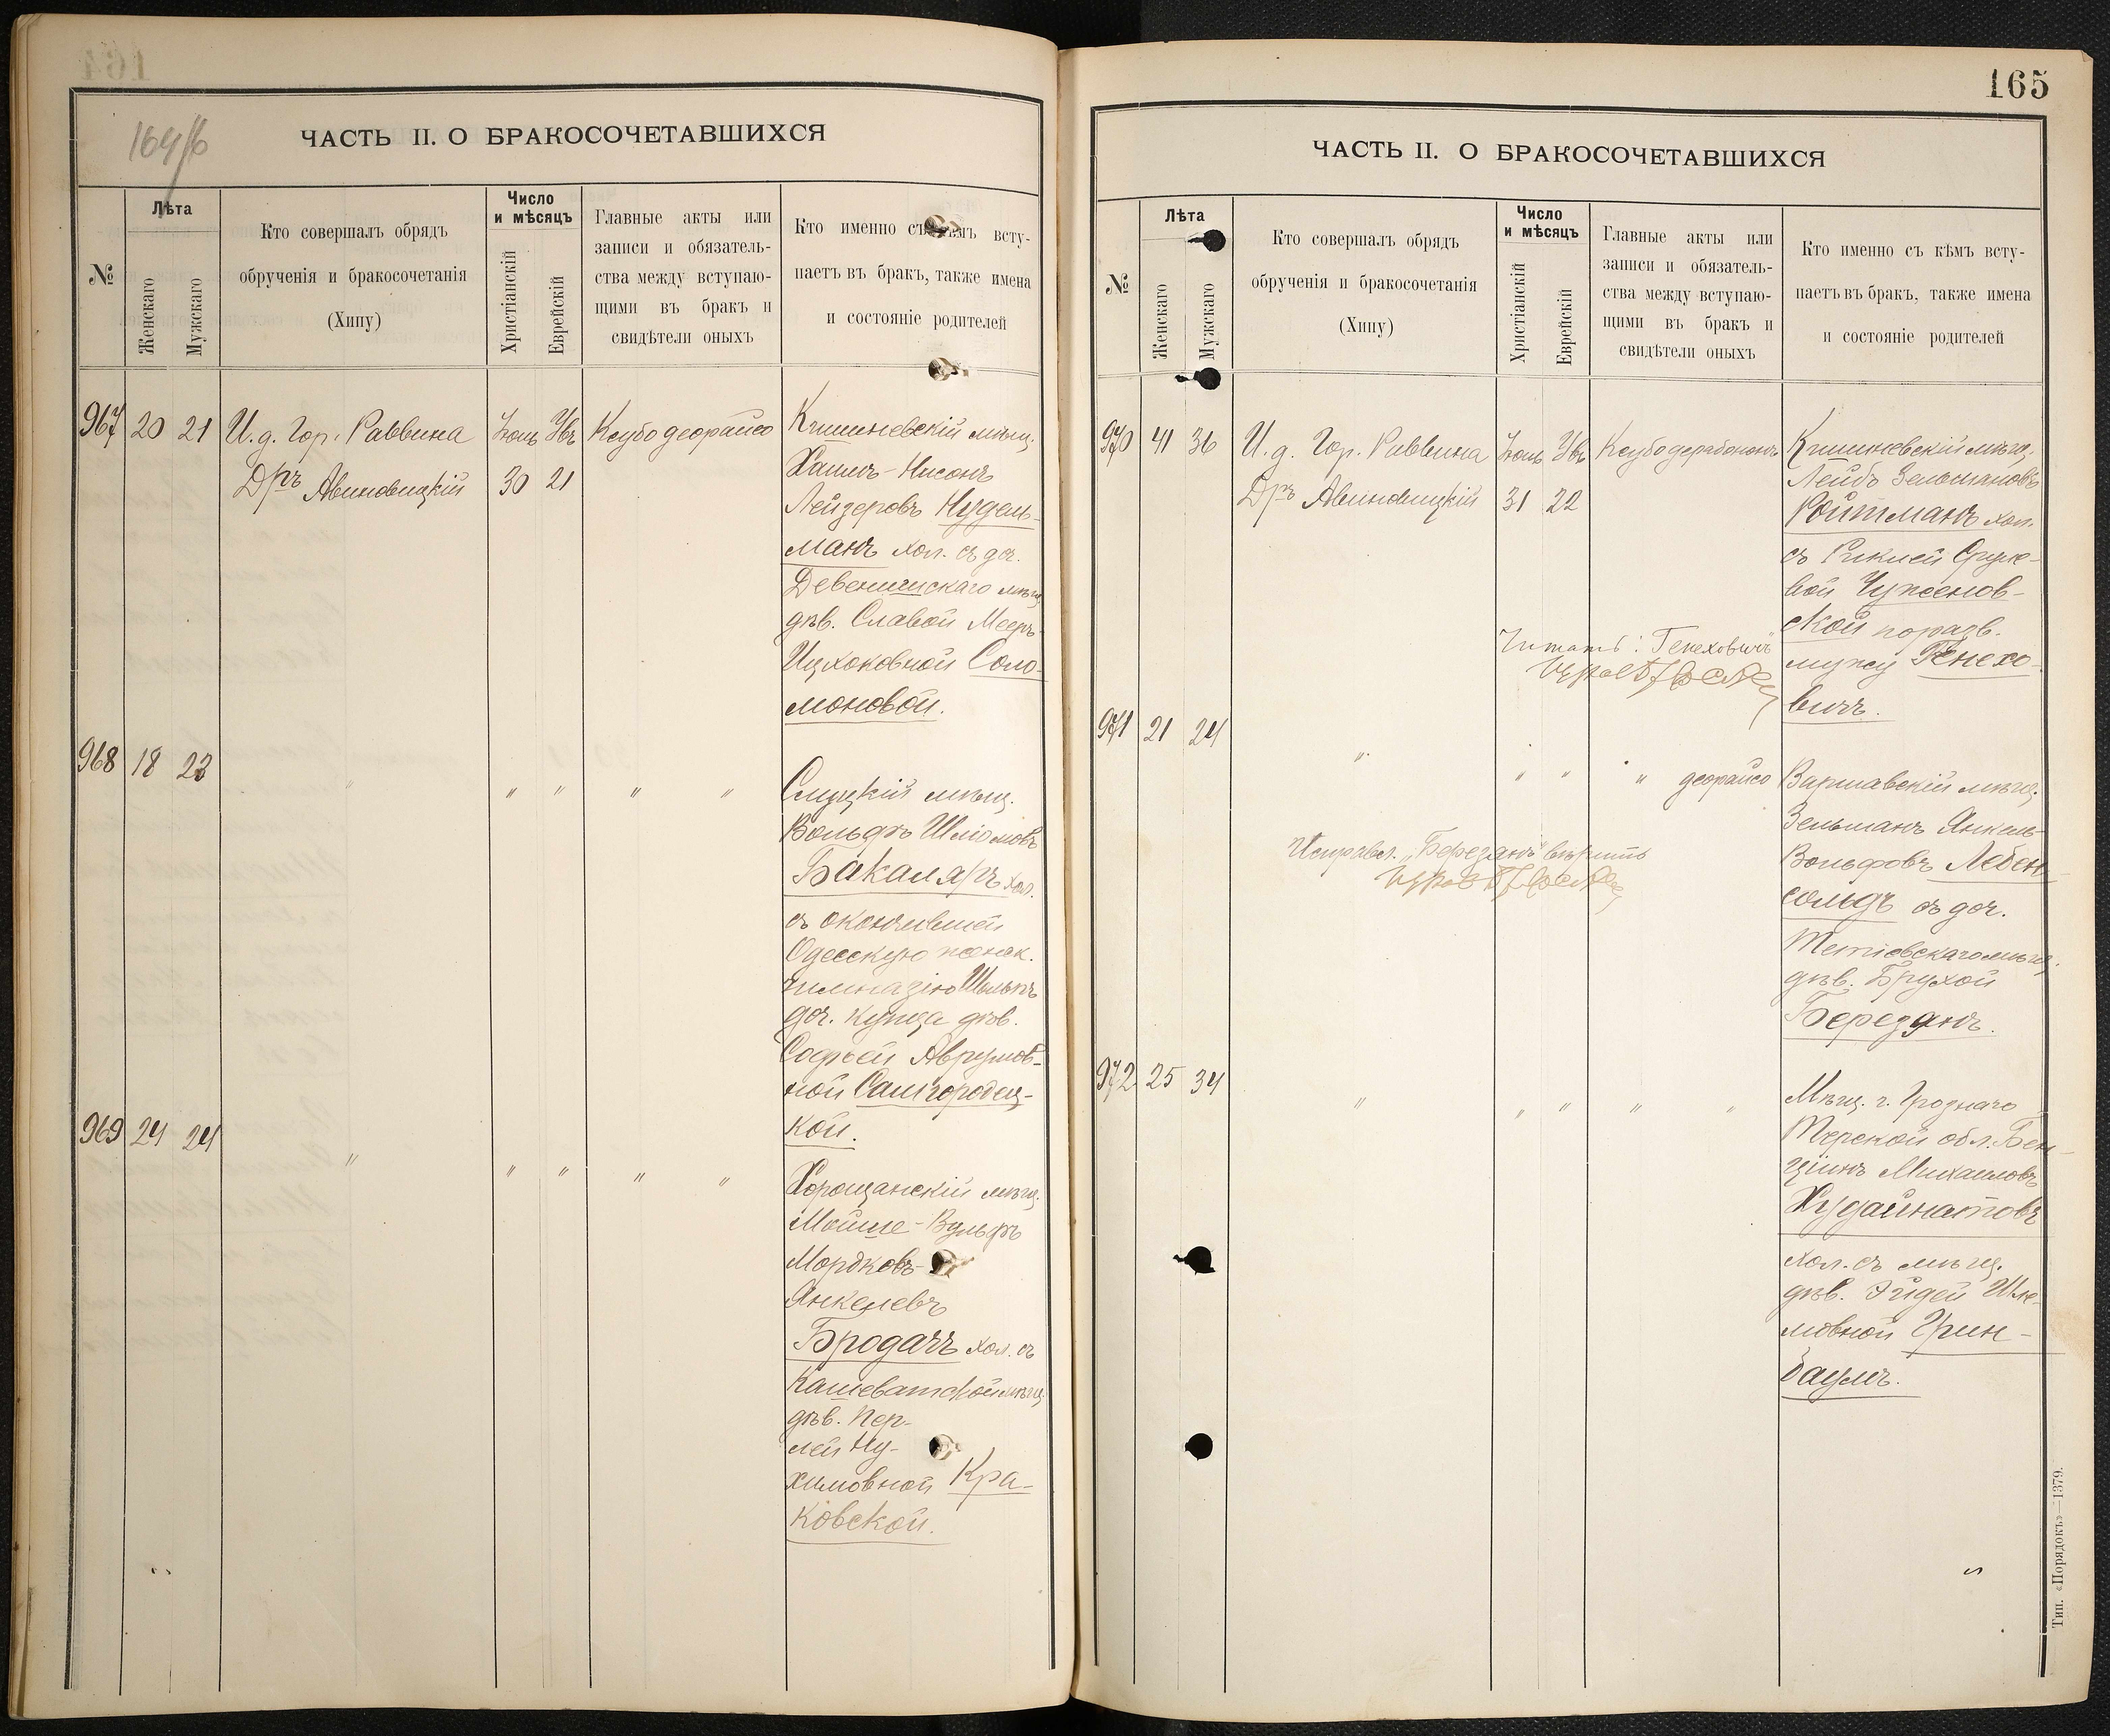 164/б
ЧАСТЬ II. О БРАКОСОЧЕТАВШИХСЯ
№
Лѣта
Женскаго
Мужскаго
Кто совершалъ обрядъ
обрученія и бракосочетанія
(Хипу)
Число
и мѣсяцъ
Христіанскій
Еврейскій
Главные акты или
записи и обязатель-
ства между вступаю-
щими въ бракъ и
свидѣтели оныхъ
Кто именно съ кѣмъ всту-
паетъ въ бракъ, также имена
и состояніе родителей
967 20 21 И. д. Гор. Раввина Ксубо деорайсо
Дръ Авиновицкій 30 21
Кишиневскій мѣщ.
Хаимъ-Нисонъ
Лейзеровъ Нудель-
манъ хол. съ доч.
Девенишскаго мѣщ.
дѣв. Славой Мееръ-
Ицхоковной Соло-
моновой.
968 18 23 " " " " "
Слуцкій мѣщ.
Вольфъ Шліомовъ
Бакаляръ хол.
съ окончившей
Одесскую женск.
гимназію
доч. купца дѣв.
Софьей Аврумов-
ной Самгородец-
кой.
969 24 24 " " " " "
Хорощанскій мѣщ.
Мойше-Вульфъ
Мордковъ-
Янкелевъ
Бродачъ хол. съ
Кашеватской мѣщ.
дѣв. Пер-
лей Ну-
химовной Кра-
ковской.
165
ЧАСТЬ II. О БРАКОСОЧЕТАВШИХСЯ
№
Лѣта
Женскаго
Мужскаго
Кто совершалъ обрядъ
обрученія и бракосочетанія
(Хипу)
Число
и мѣсяцъ
Христіанскій
Еврейскій
Главные акты или
записи и обязатель-
ства между вступаю-
щими въ бракъ и
свидѣтели оныхъ
Кто именно съ кѣмъ всту-
паетъ въ бракъ, также имена
и состояніе родителей
970 41 36 И. д. Гор. Раввина Ксубо дерабононъ
Дръ Авиновицкій 31 22
Кишиневскій мѣщ.
Лейбъ Зельмановъ
Ройтманъ хол.
съ Риклей Сруле-
вой Чуженов-
ской поразв.
мужу Генехо-
вичъ.
Читать: "Генеховичъ"
971 21 24 " " " " деорайсо
Варшавскій мѣщ.
Зельманъ Янкель-
Вольфовъ Лебен-
сольдъ съ доч.
Тетіевскаго мѣщ.
дѣв. Брухой
Березанъ.
Исправл. "Березанъ" вѣрить
972 25 34 " " " " "
Мѣщ. г. Грознаго
Терской обл. Бен-
ціинъ Михаиловъ
Худайнатовъ
хол. съ мѣщ.
дѣв. Эйдей Шле-
мовной Грин-
баумъ.
Тип. «Порядокъ»—1379.